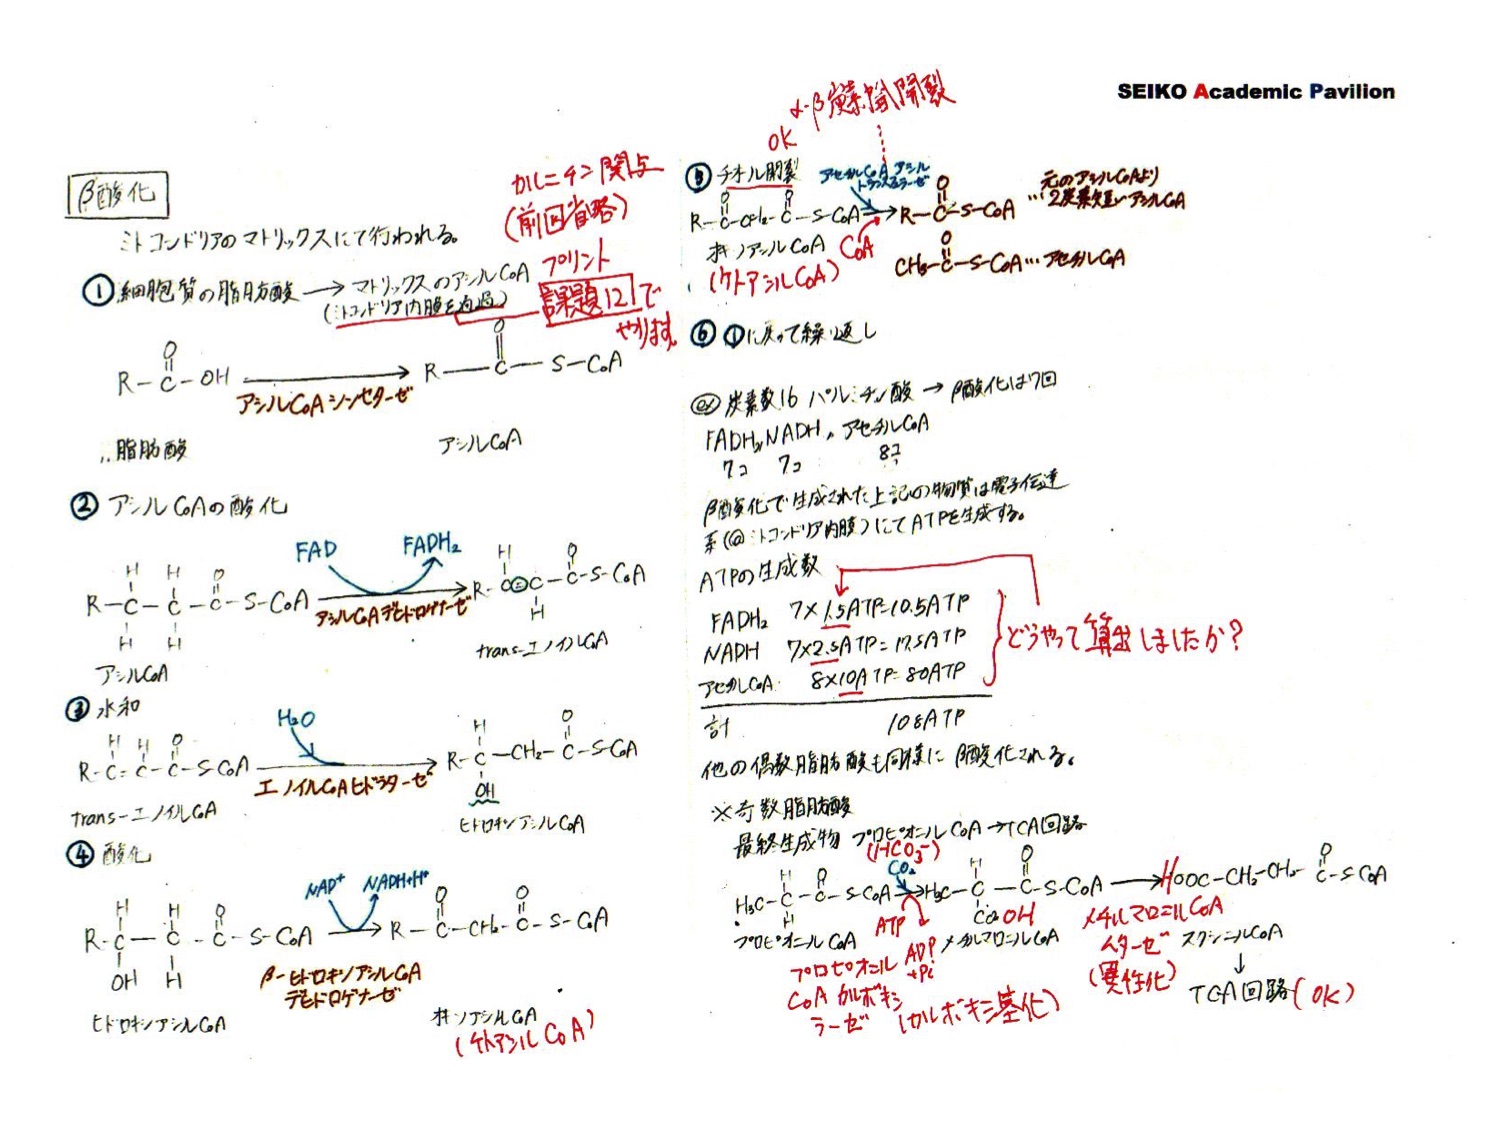 SEIKO Academic Pavilion
β酸化
ミトコンドリアのマトリックスにて行われる。
カルニチン関与
(前回省略)
プリント
課題12でやります
①細胞質の脂肪酸→マトリックスのアシルCoA
(ミトコンドリア内膜を通過)
R-C-OH
O
アシルCoAシンセターゼ
R-C-S-CoA
O
脂肪酸
アシルCoA
② アシルCoAの酸化
FAD
FADH₂
H H O
R-C-C-C-S-CoA
H H
アシルCoAデヒドロゲナーゼ
H O
R-C=C-C-S-CoA
H
アシルCoA
trans-エノイルCoA
③ 水和
H₂O
H H O
R-C=C-C-S-CoA
エノイルCoAヒドラターゼ
H O
R-C-CH₂-C-S-CoA
OH
trans-エノイルCoA
ヒドロキシアシルCoA
④ 酸化
NAD⁺
NADH+H⁺
H H O
R-C-C-C-S-CoA
OH H
O O
R-C-CH₂-C-S-CoA
β-ヒドロキシアシルCoA
デヒドロゲナーゼ
ヒドロキシアシルCoA
オキソアシルCoA
(ケトアシルCoA)
α-β炭素間開裂
OK
⑤ チオール開裂
アセチルCoAアシル
トランスフェラーゼ
O O
R-C-CH₂-C-S-CoA
O
R-C-S-CoA
…元のアシルCoAより
2炭素短いアシルCoA
オキソアシルCoA
CoA
(ケトアシルCoA)
O
CH₃-C-S-CoA…アセチルCoA
⑥ ①に戻って繰り返し
ex 炭素数16 パルミチン酸→β酸化は7回
FADH₂, NADH, アセチルCoA
7コ 7コ 8コ
β酸化で生成された上記の物質は電子伝達
系(@ミトコンドリア内膜)にてATPを生成する。
ATPの生成数
FADH₂ 7×1.5ATP=10.5ATP
NADH 7×2.5ATP=17.5ATP
アセチルCoA 8×10ATP=80ATP
どうやって算出しましたか?
計 108ATP
他の偶数脂肪酸も同様にβ酸化される。
※奇数脂肪酸
最終生成物 プロピオニルCoA→TCA回路
(HCO₃⁻)
CO₂
H O
H₃C-C-C-S-CoA
H
H O
H₃C-C-C-S-CoA
COOH
O
HOOC-CH₂-CH₂-C-S-CoA
ATP
ADP
+Pi
プロピオニルCoA
メチルマロニルCoA
プロピオニル
CoAカルボキシ
ラーゼ
(カルボキシ基化)
メチルマロニルCoA
ムターゼ
(異性化)
スクシニルCoA
↓
TCA回路(OK)